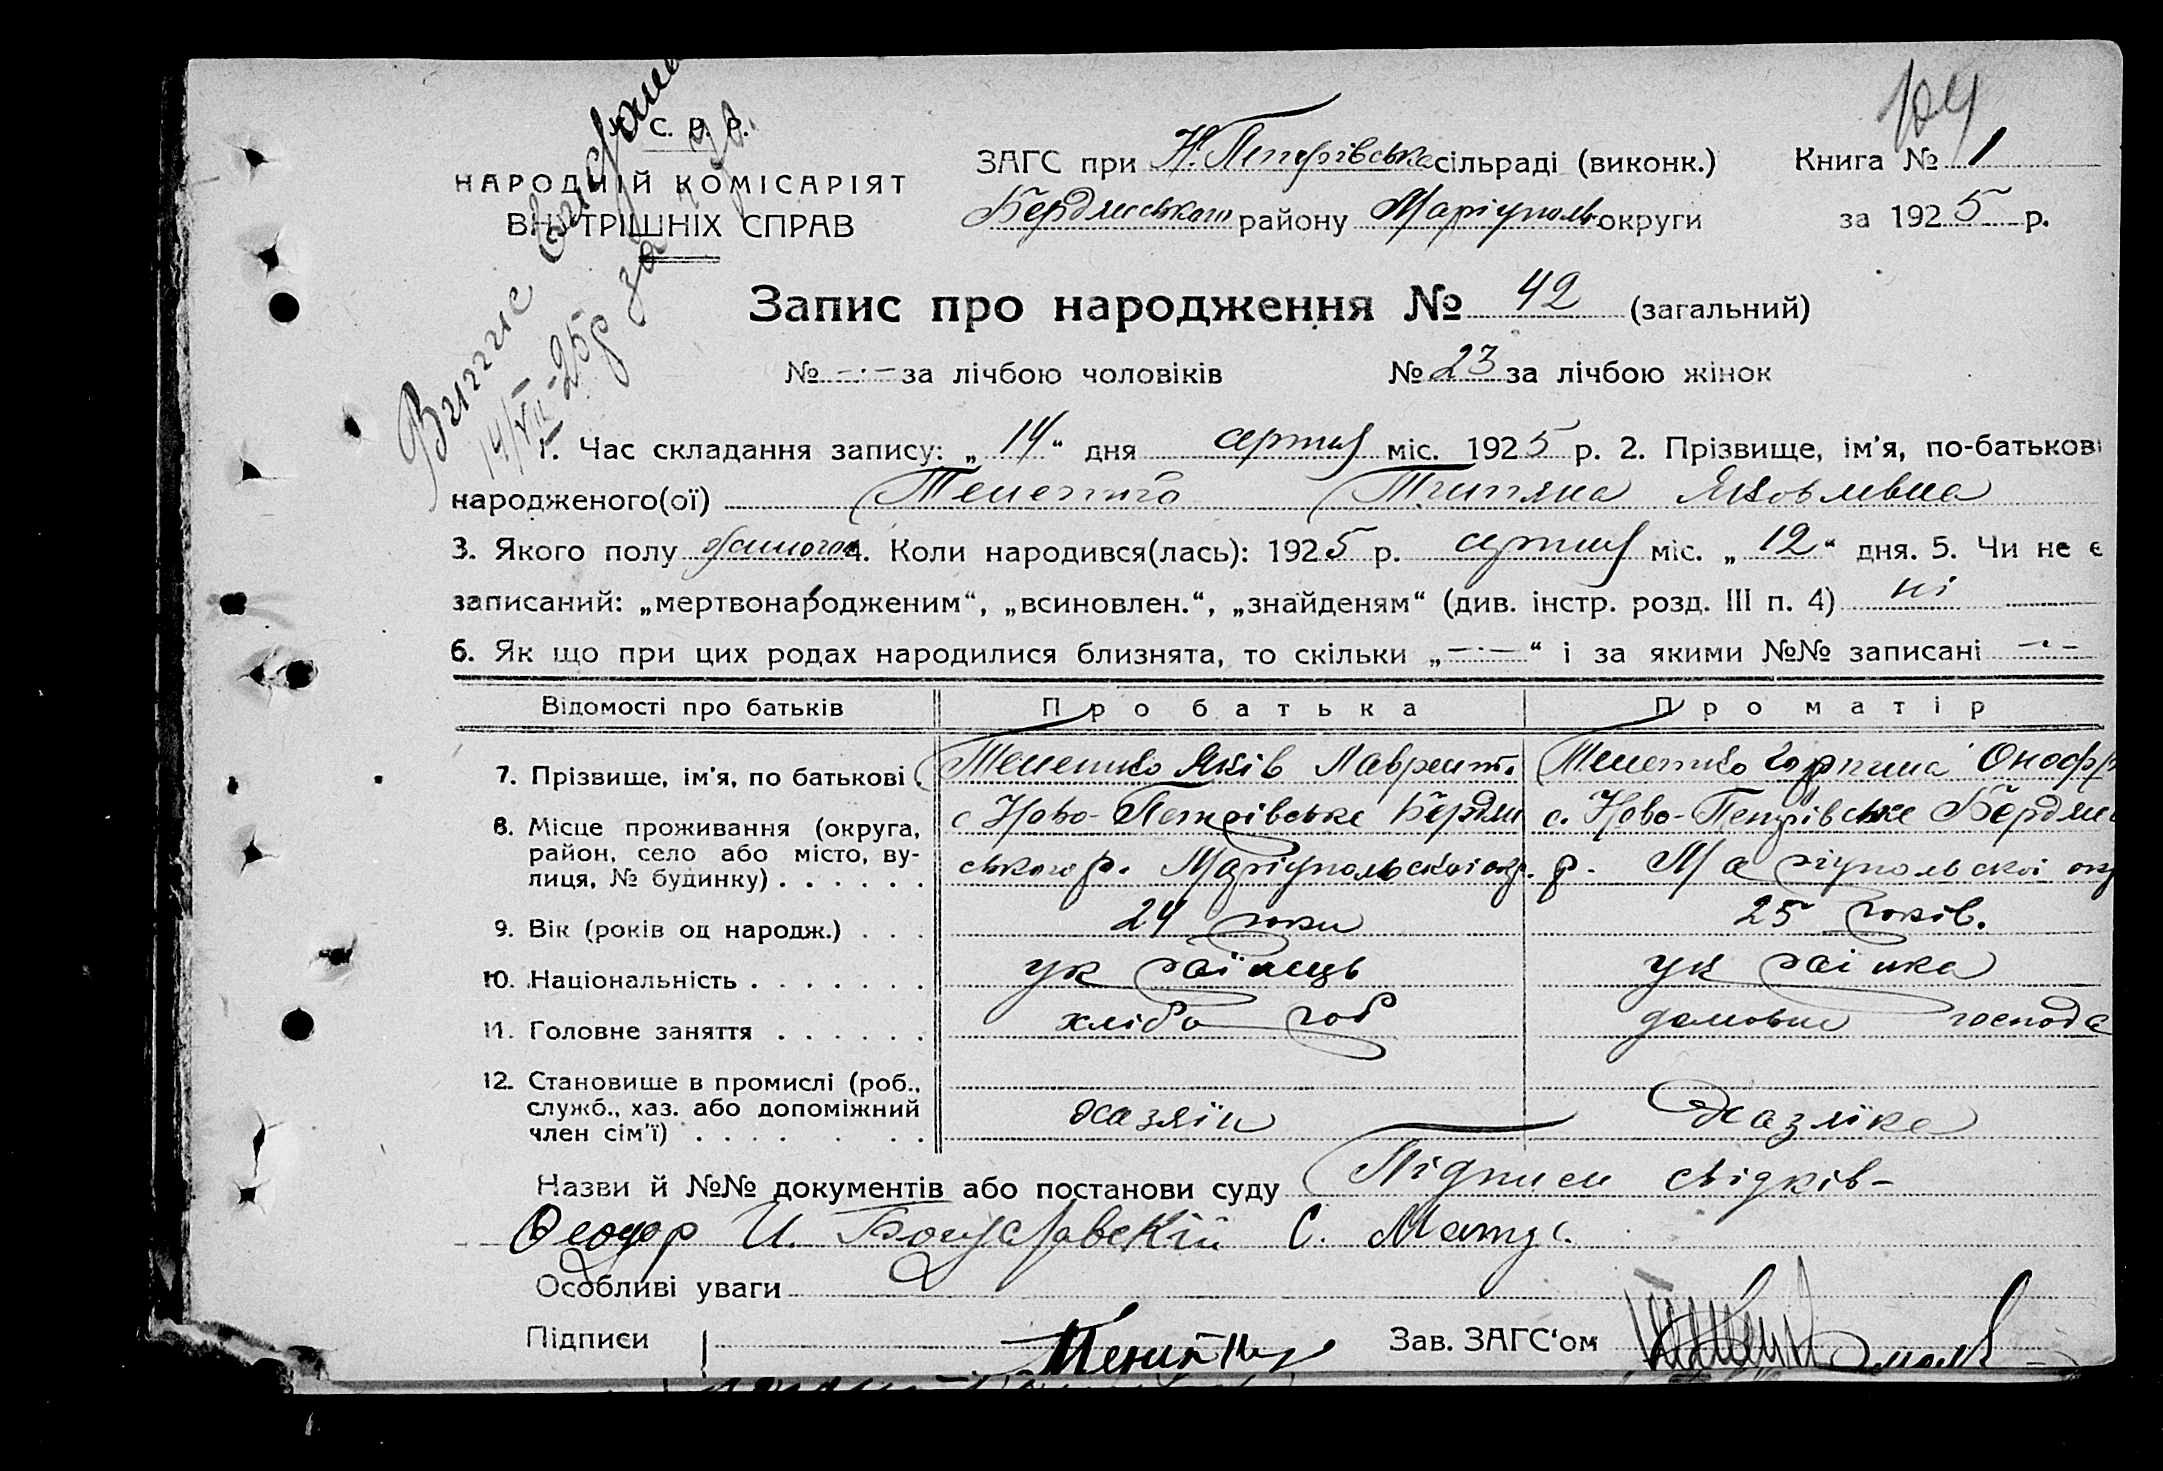 104
С. Р. Р.
НАРОДНІЙ КОМІСАРІЯТ
ВНУТРІШНІХ СПРАВ
ЗАГС при Н. Петрівське сільраді (виконк.) Книга № 1
Бердянського району Маріуполь округи за 1925 р.
Випис
14/VII-25 р за №
Запис про народження № 42 (загальний)
№ -·- за лічбою чоловіків № 23 за лічбою жінок
1. Час складання запису: „14“ дня серпня міс. 1925 р. 2. Прізвище, ім'я, по-батькові
народженого(ої) Тетяна Яковлівна
3. Якого полу жіночої 4. Коли народився(лась): 1925 р. серпня міс. „12“ дня. 5. Чи не є
записаний: „мертвонародженим“, „всиновлен.“, „знайденям“ (див. інстр. розд. III п. 4) ні
6. Як що при цих родах народилися близнята, то скільки „-·-“ і за якими №№ записані -·-
Відомості про батьків Про батька Про матір
7. Прізвище, ім'я, по батькові Яків Лаврент. Горпина Онофр
8. Місце проживання (округа, район, село або місто, вулиця, № будинку) . . . . . . с Ново-Петрівське Бердянського р. Маріупольської окр. с. Ново-Петрівське Бердянс р. Маріупольскої окр
9. Вік (років од народж.) . . . 24 роки 25 років.
10. Національність . . . . . . . українець українка
11. Головне заняття . . . . . . хлібороб домовне господа
12. Становище в промислі (роб., служб., хаз. або допоміжний член сім'ї) . . . . . . . хазяїн хазяїка
Назви й №№ документів або постанови суду Підписи свідків-
Феодор И. Богуславскій С. Матус.
Особливі уваги
Підписи Зав. ЗАГС'ом